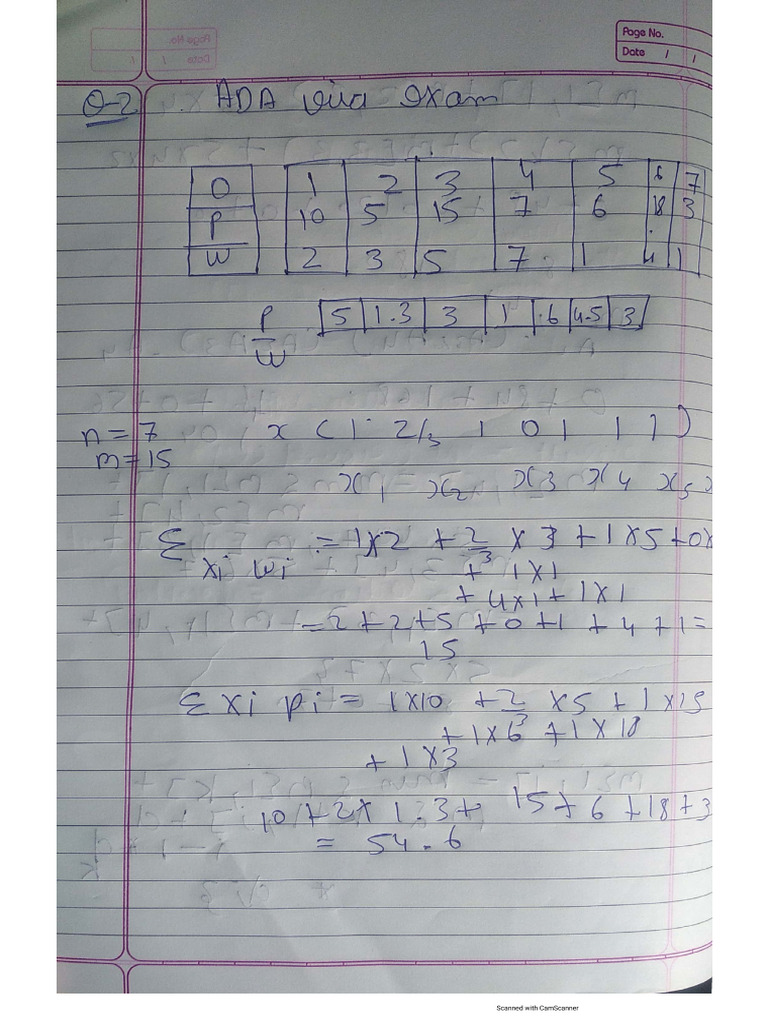 Page No.
Date / /
Q-2 ADA viva exam
O 1 2 3 4 5 6 7
P 10 5 15 7 6 18 3
W 2 3 5 7 1 4 1
P/W 5 1.3 3 1 .6 4.5 3
n = 7 x ( 1 2/3 1 0 1 1 1 )
m = 15
x1 x2 x3 x4 x5
Σ xi wi = 1x2 + 2/3 x 3 + 1x5 + 0x
+ 1x1
+ 4x1 + 1x1
= 2+2+5 +0+1 +4+1=
15
Σ xi pi = 1x10 +2/3 x5 + 1x15
+1x6 +1x18
+ 1x3
10 +2x 1.3+ 15+ 6 +18+3
= 54.6
Scanned with CamScanner